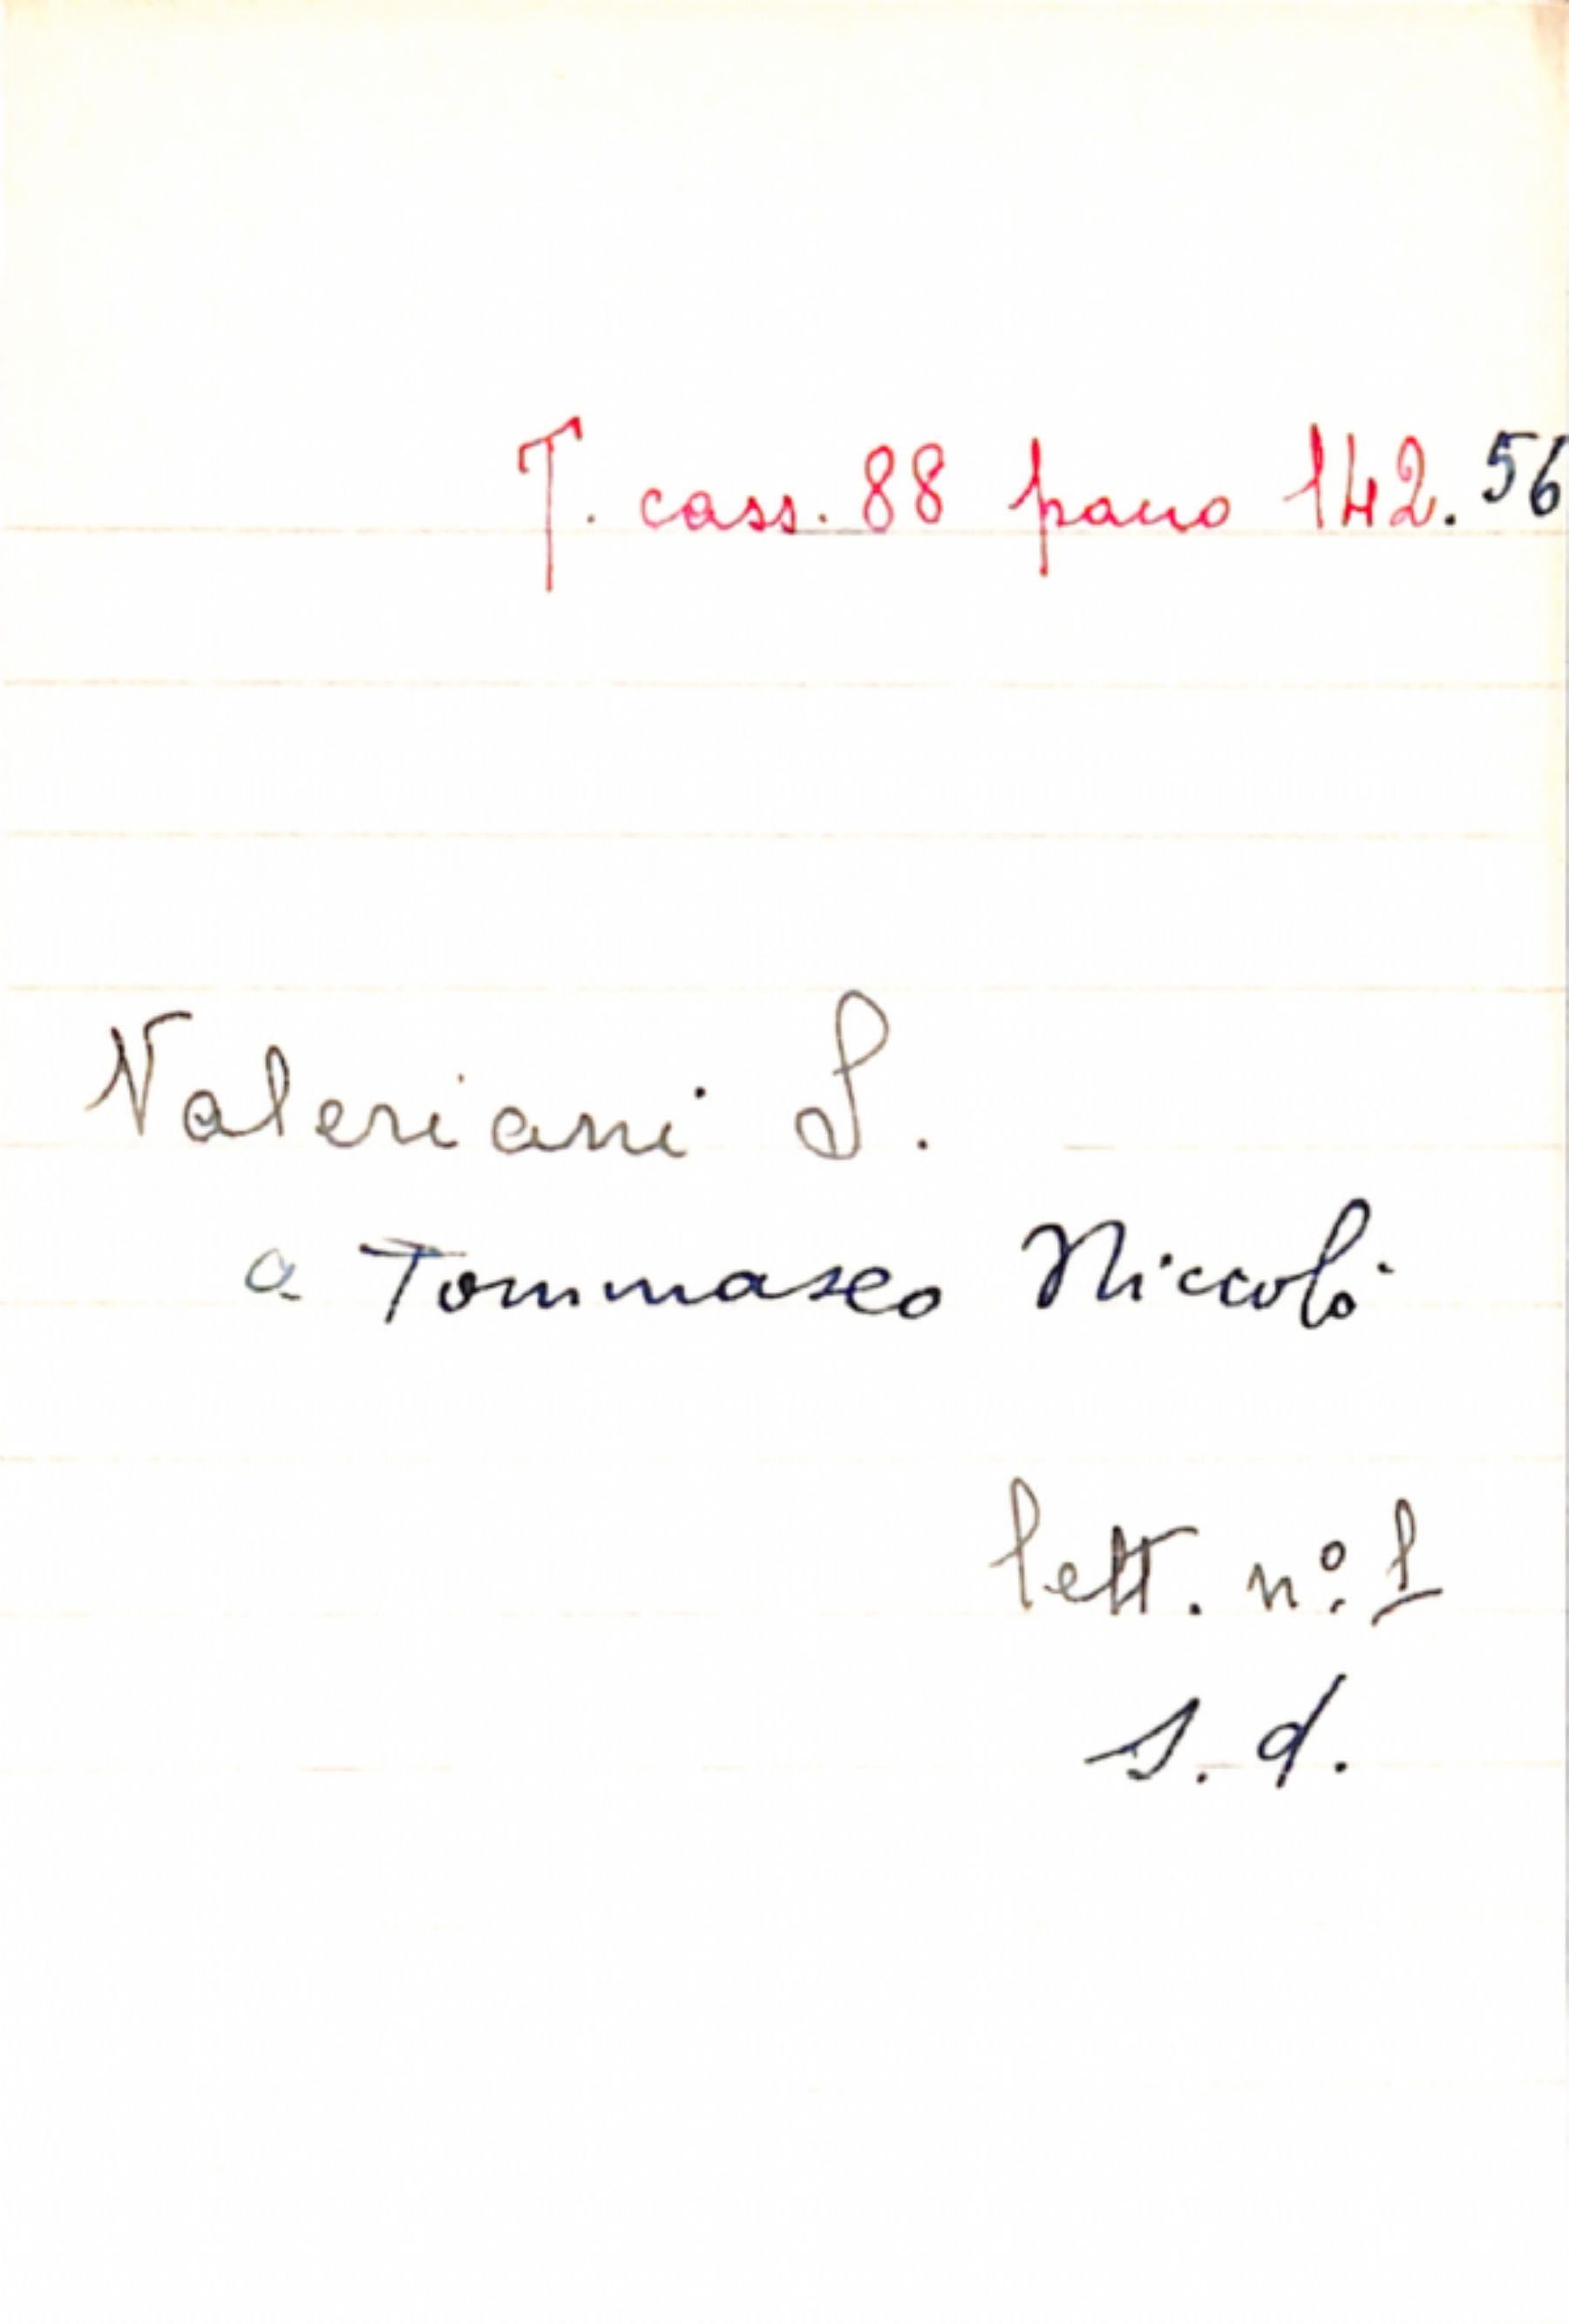 T. cass. 88 pacco 142.56
Valeriani S.
a Tommaseo Niccolò
lett. n.º 1
s. d.